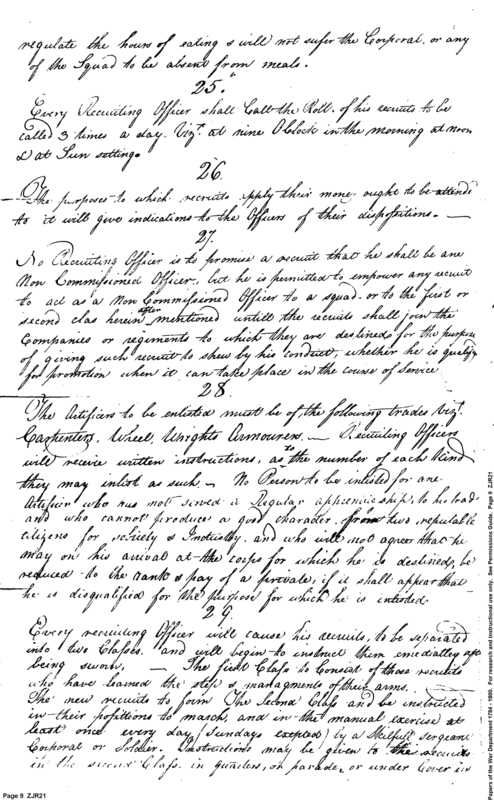 regulate the hours of eating & will not sufer the Corporal. or any
of the Squad to be absent from meals.
25.
Every Recruiting Officer shall Call the Roll. of his recruits to be
Called 3 times a day. Vizt. at nine OClock in the morning at noon
& at Sun setting.
26.
The purposes to which recruits apply their mone, ought to be attende
to it will give indications to the Officers of their dispositions. —
27.
No Recruiting Officer is to promise a recruit that he shall be ane
Non Commissioned Officer, but he is permitted to empower any recruit
to act as a Non Commissioned Officer to a squad. or to the first or
second clas herein after mentioned untill the recruits shall join the
Companies or regiments to which they are destined, for the purpose
of giving such recruit to shew by his conduct, whether he is qualify
for promotion when it can take place in the course of Service
28
The Artificers to be enlisted must be of the following trades Vizt.
Carpenters, Wheel, Wrights Armourers. — Recruiting Officers
will receive written instructions, as to the number of each Kind
they may inlist as such. — No Person to be inlisted for ane
Artificer who has not served a Regular apprenticeship, to his trade
and who cannot produce a good character, from two reputable
citizens for sobriety & Industry. and who will not agree that he
may on his arrival at the corps for which he is destined, be
reduced to the rank & pay of a private, if it shall appear that
he is disqualified for the purpose for which he is inlisted
29
Every recruiting Officer will cause his recruits, to be separated
into two Classes. and will begin to instruct them emediatley after
being sworn, — The first Class to Consist of those recruits
who have learned the step & managments of their arms.
The new recruits to form The Second Class and be instructed
in their positions to march, and in the manual exercise at
least once every day (Sundays exepted) by a Skilfull sergeant
Corporal or Soldier. Instructions may be given to the recruits
in the second Class. in quarters, on parade, or under Cover in
Page 9 ZJR21
Papers of the War Department 1784 - 1800. For research and instructional use only. See Permissions Guide. Page 9 ZJR21